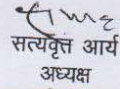 सत्यवृत्त आर्य
अध्यक्ष